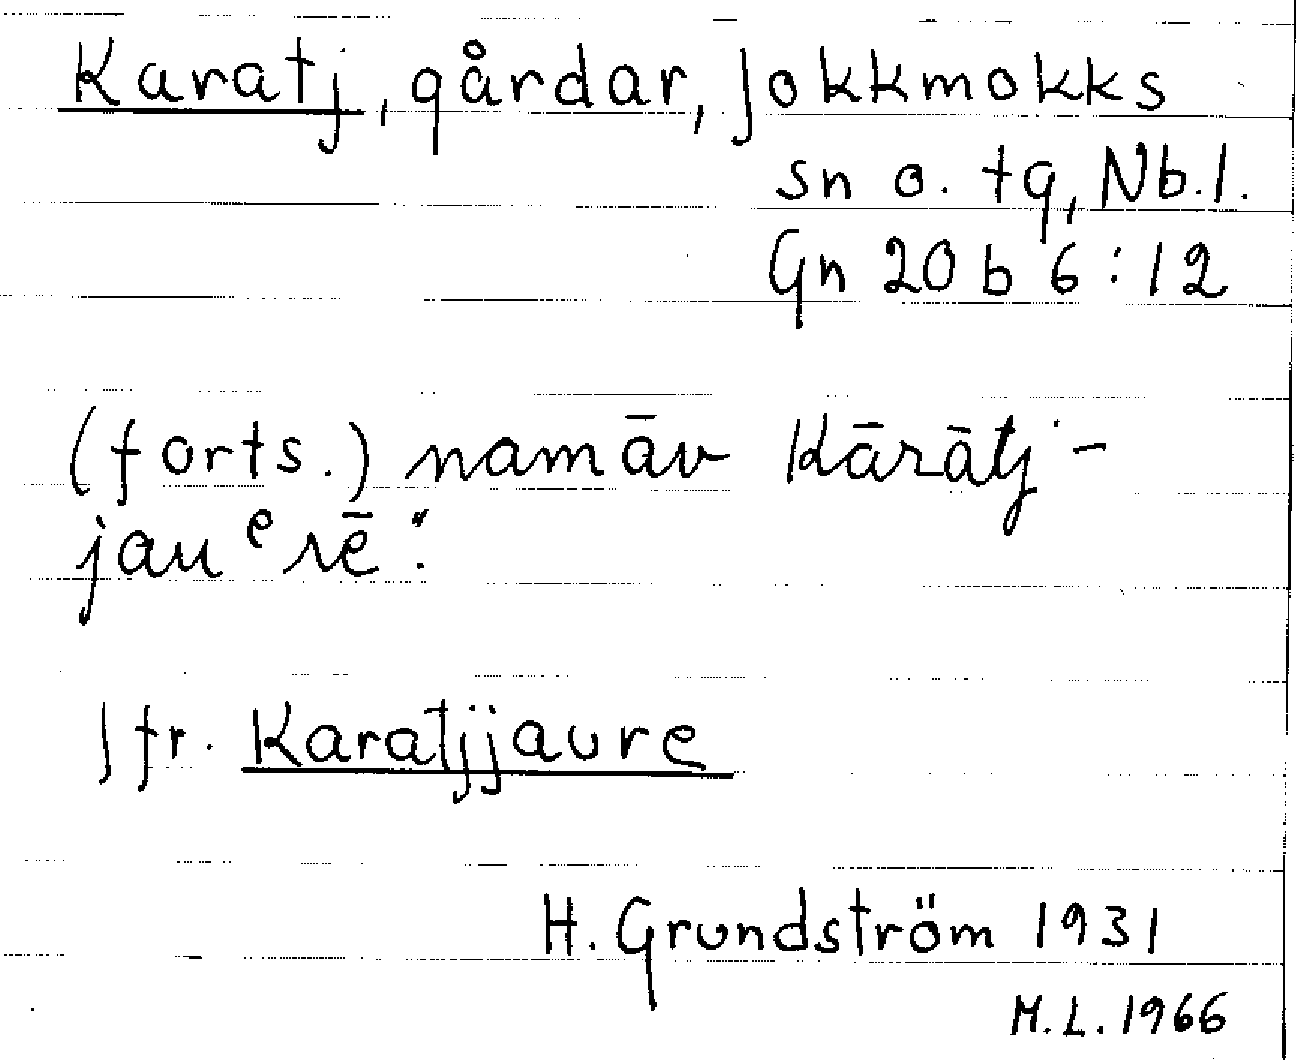 Karatj, gårdar, Jokkmokks
sn o. tg, Nb. l.
Gn 20 b 6:12
(forts.) namāv Kārātj-
jauᵉrē."
Jfr. Karatjjaure
H. Grundström 1931
M.L. 1966